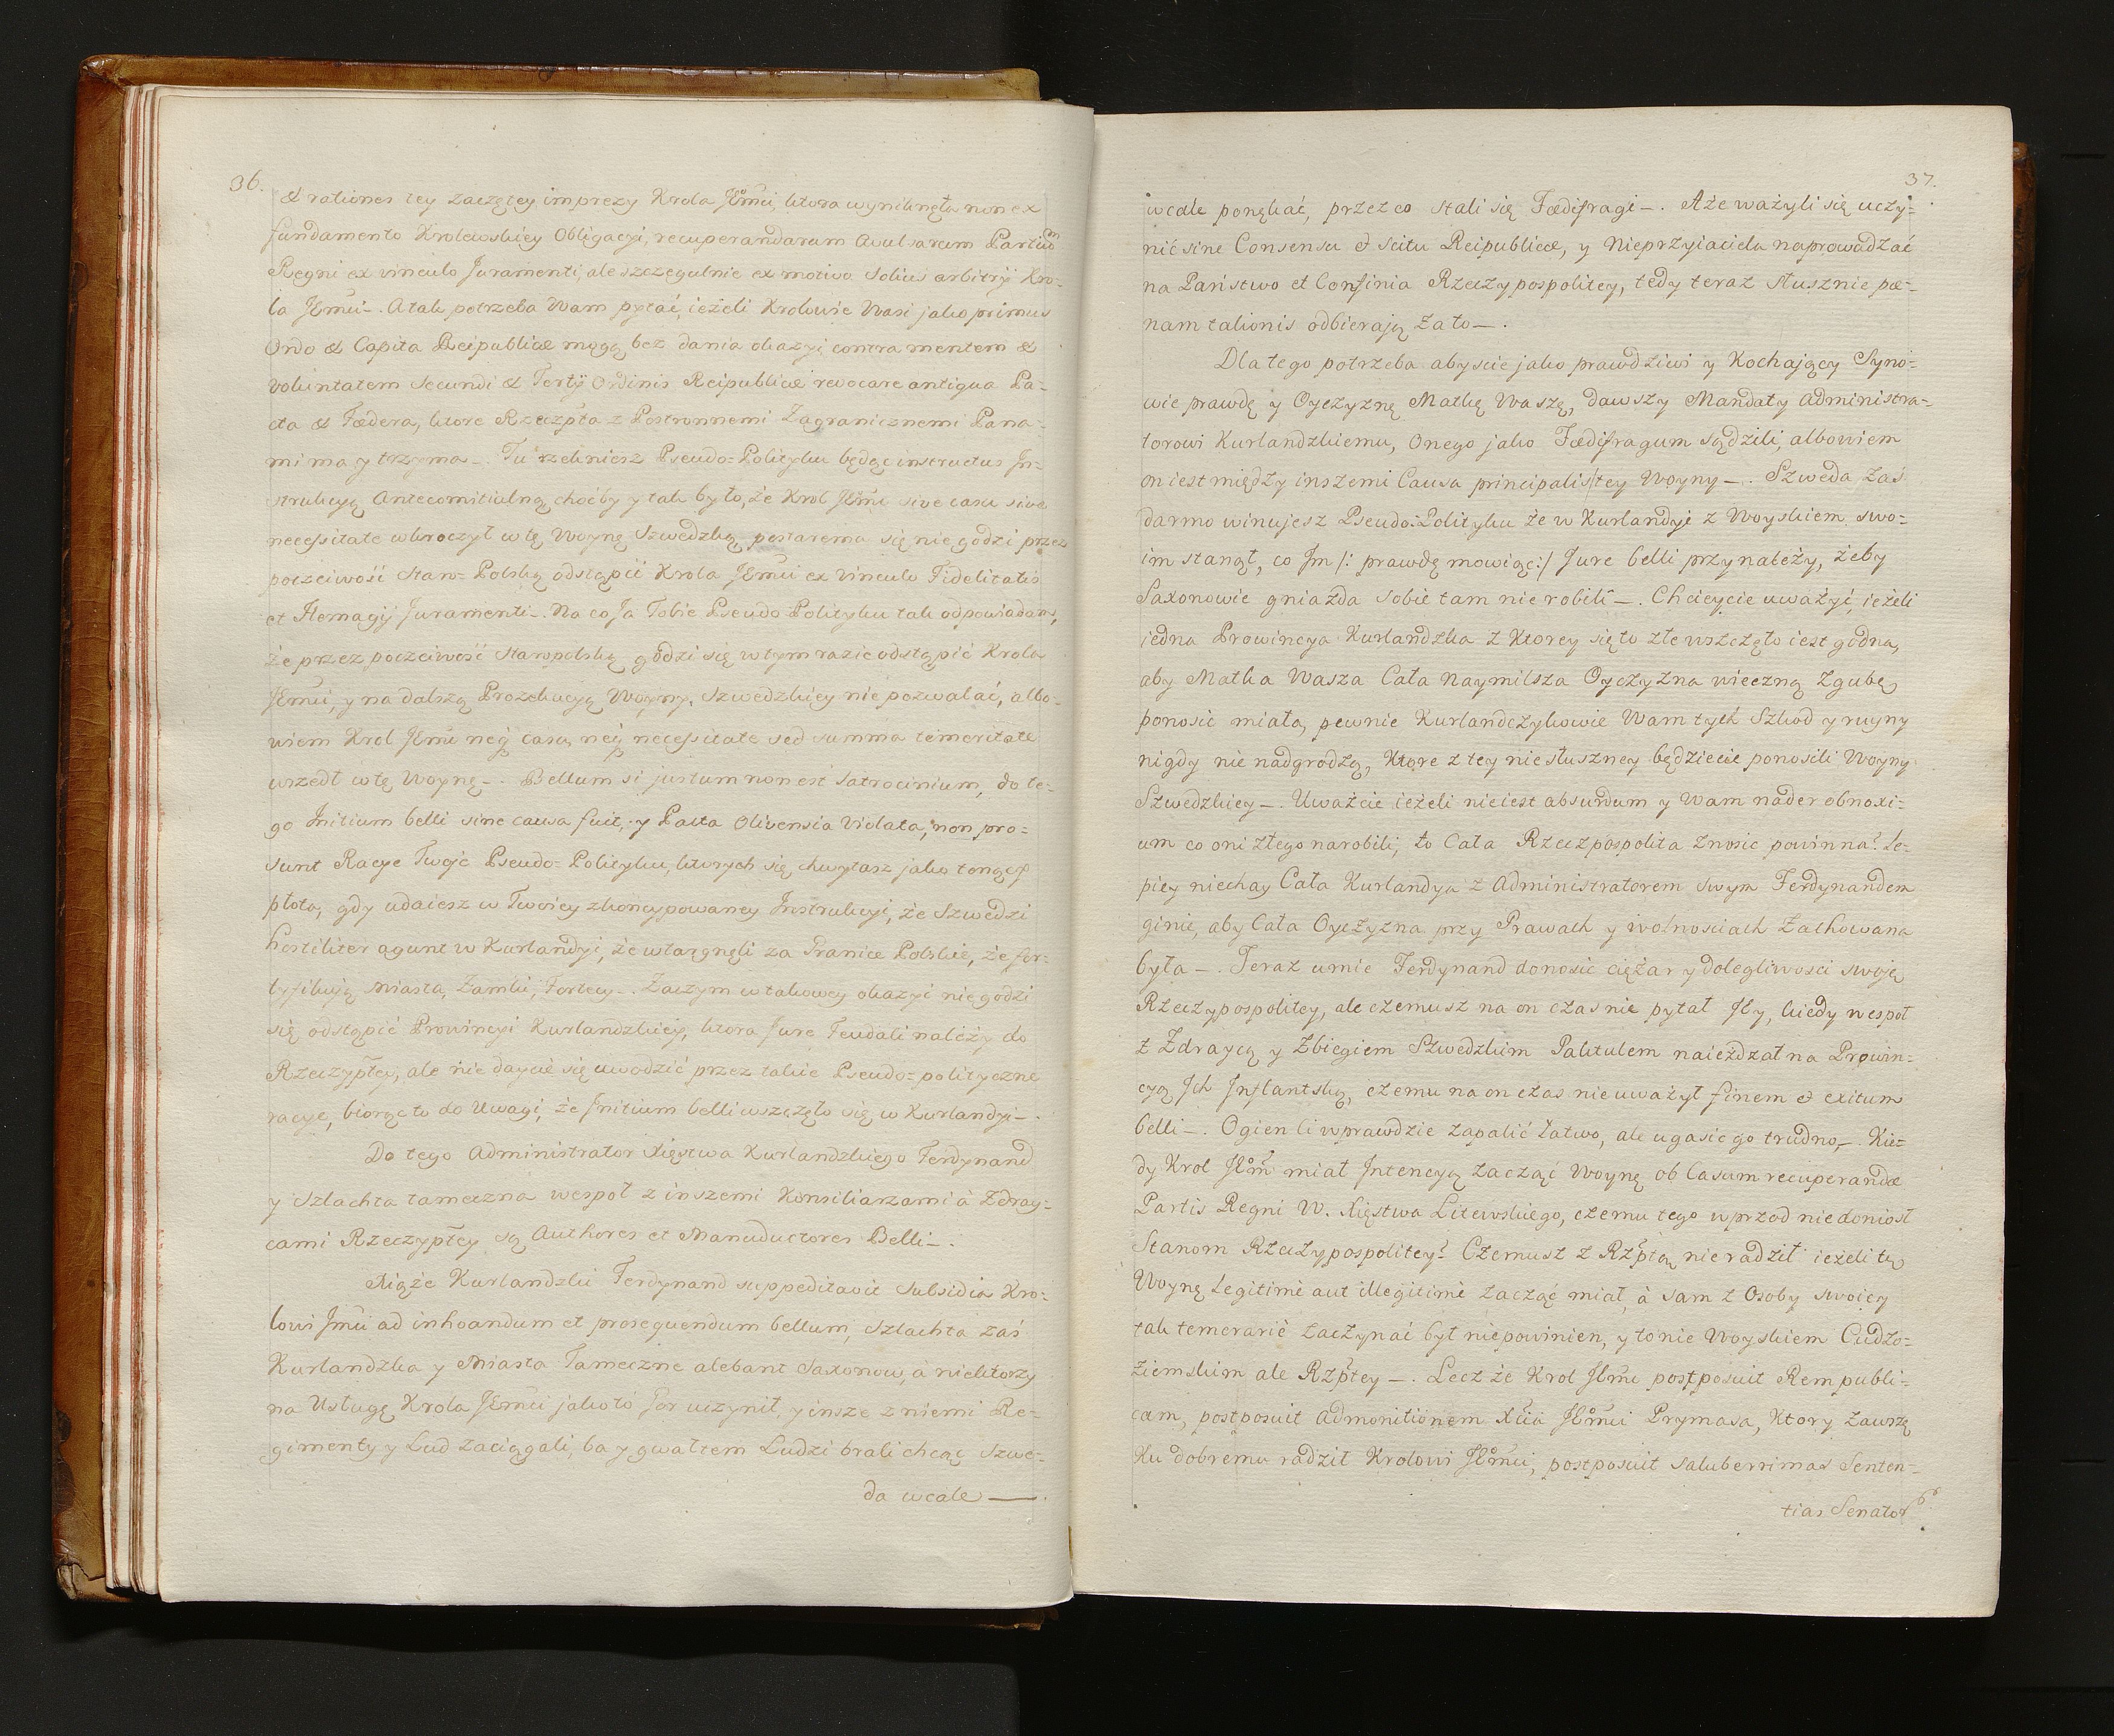 36.
& rationes tey zaczętey imprezy Krola JEmći, ktora wyniknęła non ex
fundamento Krolewskiey Obligacyi, recuperandarum avulsarum Partium
Regni ex vinculo Juramenti, ale szczegulnie ex motivo solius arbitrij Kro-
la JEmći —. A tak potrzeba Wam pytać, ieżeli Krolowie Wasi jako primus
Ordo & Capita Reipublicæ mogą bez dania okazyi contra mentem &
voluntatem secundi & Tertij Ordinis Reipublicæ revocare antiqua Pa-
cta & Fædera, ktore Rzeczpta z Postronnemi Zagranicznemi Pana-
mi ma y trzyma —. Tu rzekniesz Pseudo-Polityku będąc instructus In-
strukcyą Antecomitialną choćby y tak było, że Krol JEmć sive casu sive
necessitate wkroczył w tę Woynę Szwedzką postaremu się nie godzi przez
poczciwość Staro-Polską odstąpić Krola JEmći ex vinculo Fidelitatis
et Homagij Juramenti —. Na co Ja Tobie Pseudo-Polityku tak odpowiadam,
że przez poczciwość staropolską godzi się w tym razie odstąpić Krola
JEmći, y na dalszą Prozekucyą Woyny Szwedzkiey nie pozwalać, albo-
wiem Krol JEmć neq casu, neq necessitate sed summa temeritate
wszedł w tę Woynę —. Bellum si justum non est latrocinium, do te-
go Initium belli sine causa fuit, y Pacta Olivensia violata, non pro-
sunt Racye Twoje Pseudo-Polityku, ktorych się chwytasz jako tonący
płota, gdy udaiesz w Twoiey zkoncypowaney Instrukcyi, że Szwedzi
hostiliter agunt w Kurlandyi, że wtargnęli za Granice Polskie, że for-
tyfikują Miasta, Zamki, Fortecy —. Zaczym w takowey okazyi nie godzi
się odstąpić Prowincyi Kurlandzkiey, ktora Jure Feudali należy do
Rzeczyptey, ale nie daycie się uwodzić przez takie Pseudo-polityczne
racye, biorąc to do Uwagi, że Initium belli wszczęło się w Kurlandyi —.
Do tego Administrator Xięstwa Kurlandzkiego Ferdynand
y Szlachta tameczna wespoł z inszemi Konsiliarzami à Zdray-
cami Rzeczyptey są Authores et Manuductores Belli —.
Xiąże Kurlandzki Ferdynand suppeditavit Subsidia Kro-
lowi Jmći ad inhoandum et prosequendum bellum, Szlachta zaś
Kurlandzka y Miasta Tameczne alebant Saxonow, à niektorzy
na Usługę Krola JEmći jako to For uczynił, y insze z niemi Re-
gimenty y Lud zaciągali, ba y gwałtem Ludzi brali chcąc Szwe-
da wcale —.
37.
wcale ponękać, przez co stali się Fædifragi —. A że ważyli się uczy-
nić sine Consensu & scitu Reipublicæ, y Nieprzyiaciela naprowadzać
na Państwo et Confinia Rzeczypospolitey, tedy teraz słusznie pæ-
nam talionis odbierają za to —.
Dla tego potrzeba abyscie jako prawdziwi y Kochający Syno-
wie prawdę y Oyczyznę Matkę Waszę, dawszy Mandaty Administra-
torowi Kurlandzkiemu, Onego jako Fædifragum sądzili, albowiem
on iest między inszemi Causa principalis tey Woyny —. Szweda zaś
darmo winujesz Pseudo-Polityku że w Kurlandyi z Woyskiem swo-
im stanął, co Jm /: prawdę mowiąc :/ Jure belli przynależy, żeby
Saxonowie gniazda sobie tam nie robili —. Chcieycie uważyć, ieżeli
iedna Prowincya Kurlandzka z Ktorey się to złe wszczęło iest godna,
aby Matka Wasza Cała Naymilsza Oyczyzna wieczną zgubę
ponosić miała, pewnie Kurlandczykowie Wam tych Szkod y ruyny
nigdy nie nadgrodzą, Ktore z tey niesłuszney będziecie ponosili Woyny
Szwedzkiey —. Uważcie ieżeli nie iest absurdum y Wam nader obnoxi-
um co oni złego narobili, to Cała Rzeczpospolita znosić powinna? Le-
piey niechay Cała Kurlandya z Administratorem swym Ferdynandem
ginie, aby Cała Oyczyzna przy Prawach y wolnosciach Zachowana
była —. Teraz umie Ferdynand donosić ciężar y dolegliwosci swoje
Rzeczypospolitey, ale czemusz na on czas nie pytał Jey, kiedy wespoł
z Zdraycą y Zbiegiem Szwedzkim Patkulem naieżdzał na Prowin-
cyą Jch Jnflantską, czemu na on czas nie uważył finem & exitum
belli —. Ogien li wprawdzie zapalić łatwo, ale ugasić go trudno, —. Kie-
dy Krol JEmć miał Jntencyą zacząć Woynę ob Casum recuperandæ
Partis Regni W. Xięstwa Litewskiego, czemu tego wprzod nie doniosł
Stanom Rzeczypospolitey? Czemusz z Rzptą nie radził ieżeli tę
Woynę legitimè aut illegitimè zacząć miał, à sam z Osoby swoiey
tak temerariè zaczynać był niepowinien, y to nie Woyskiem Cudzo-
ziemskim ale Rzptey —. Lecz że Krol JEmć postposuit Rempubli-
cam, postposuit admonitionem Xcia JEmći Prymasa, Ktory zawszę
Ku dobremu radził Krolowi JEmći, postposuit saluberrimas Senten-
tias Senator